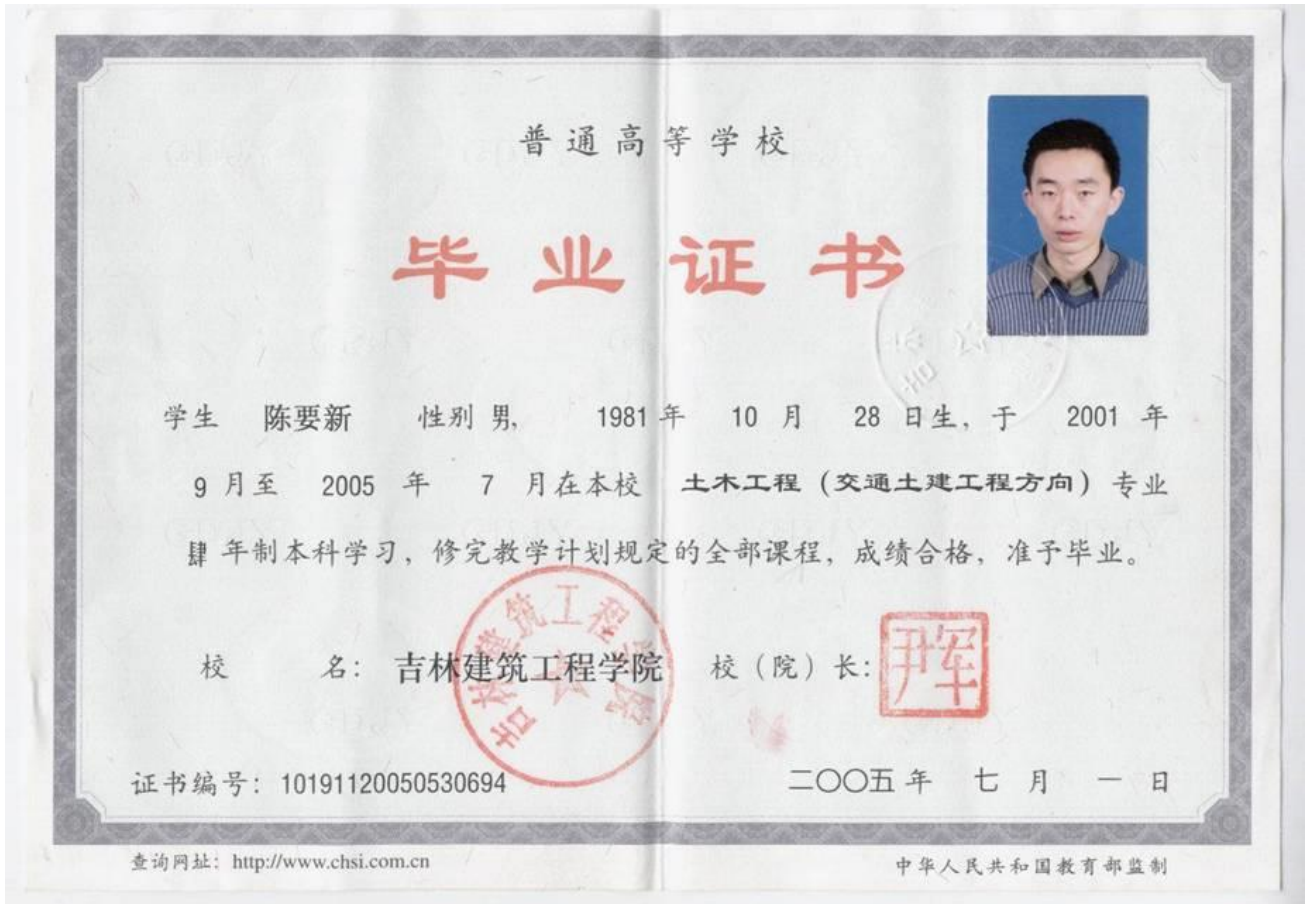 普通高等学校
毕业证书
学生 陈要新 性别 男, 1981 年 10 月 28 日生, 于 2001 年
9 月至 2005 年 7 月在本校 土木工程（交通土建工程方向）专业
肆 年制本科学习, 修完教学计划规定的全部课程, 成绩合格, 准予毕业。
校 名: 吉林建筑工程学院 校（院）长:
吉林建筑工程学院
证书编号: 10191120050530694 二〇〇五 年 七 月 一 日
查询网址: http://www.chsi.com.cn 中华人民共和国教育部监制